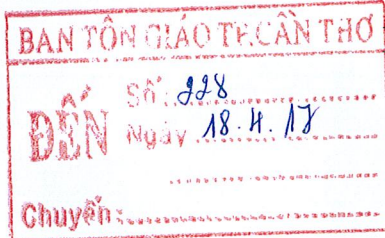 BAN TÔN GIÁO TP.CẦN THƠ
ĐẾN
Số: 228
Ngày 18.4.17
Chuyển: